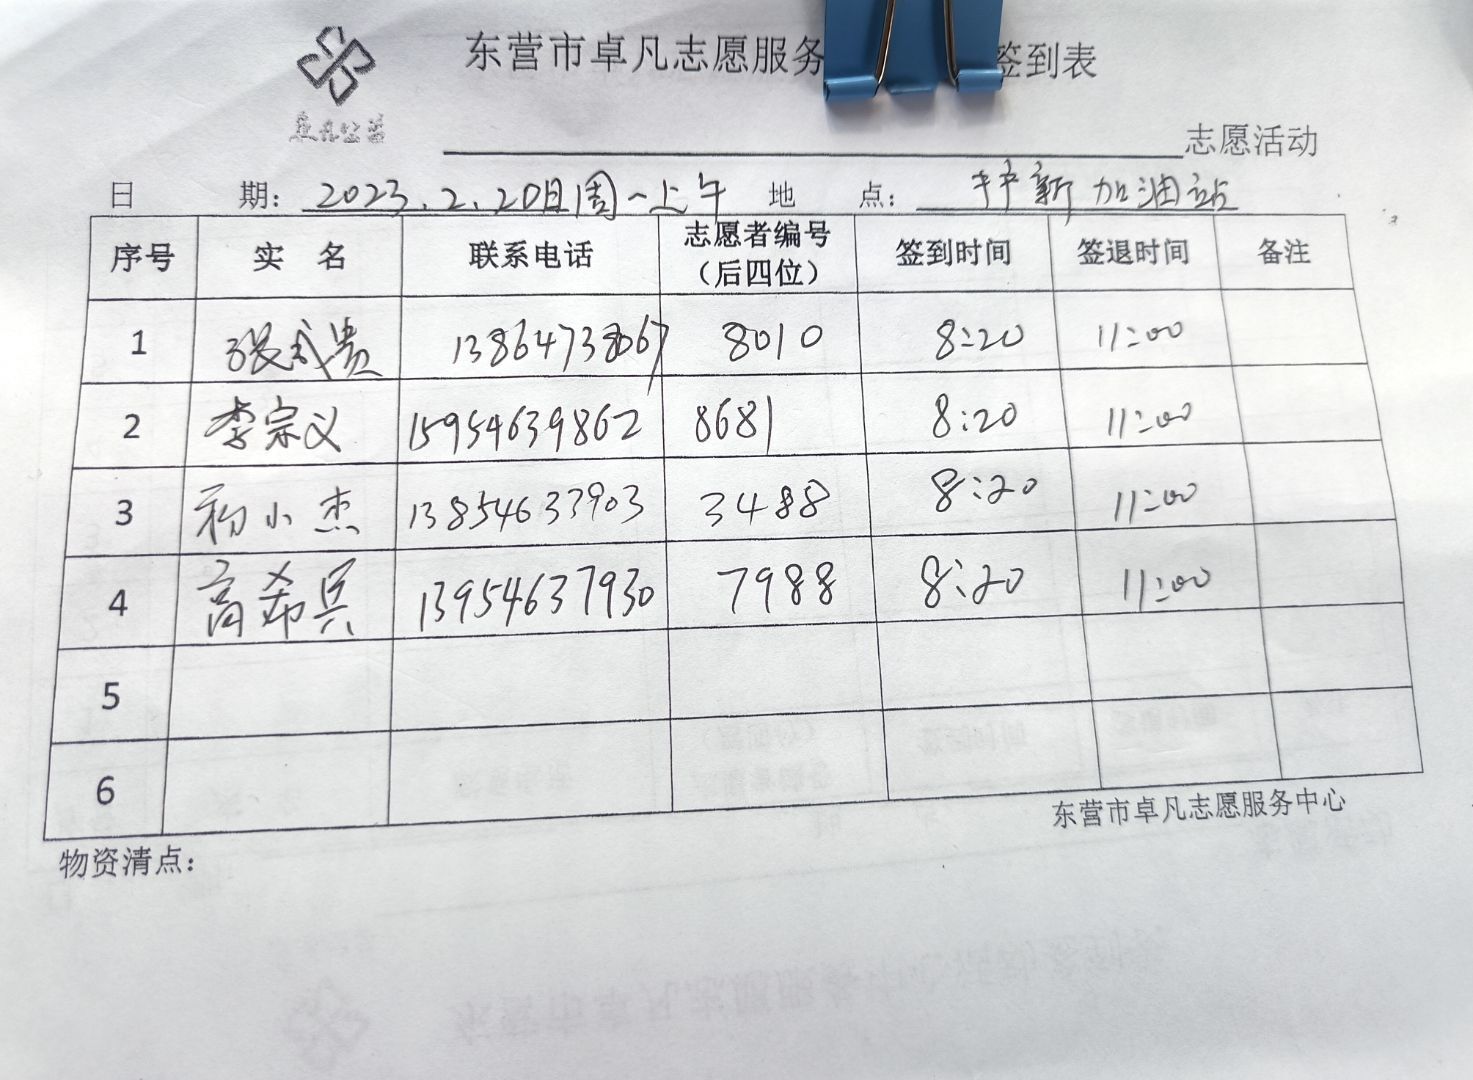 东营市卓凡志愿服务 签到表
卓凡公益
志愿活动
日 期：2023.2.20日周一上午 地 点：辛新加油站
序号 实 名 联系电话 志愿者编号（后四位） 签到时间 签退时间 备注
1 张武贵 13864738067 8010 8:20 11:00
2 李宗义 15954639862 8681 8:20 11:00
3 初小杰 13854633903 3488 8:20 11:00
4 高希兵 13954637930 7988 8:20 11:00
5
6
东营市卓凡志愿服务中心
物资清点：